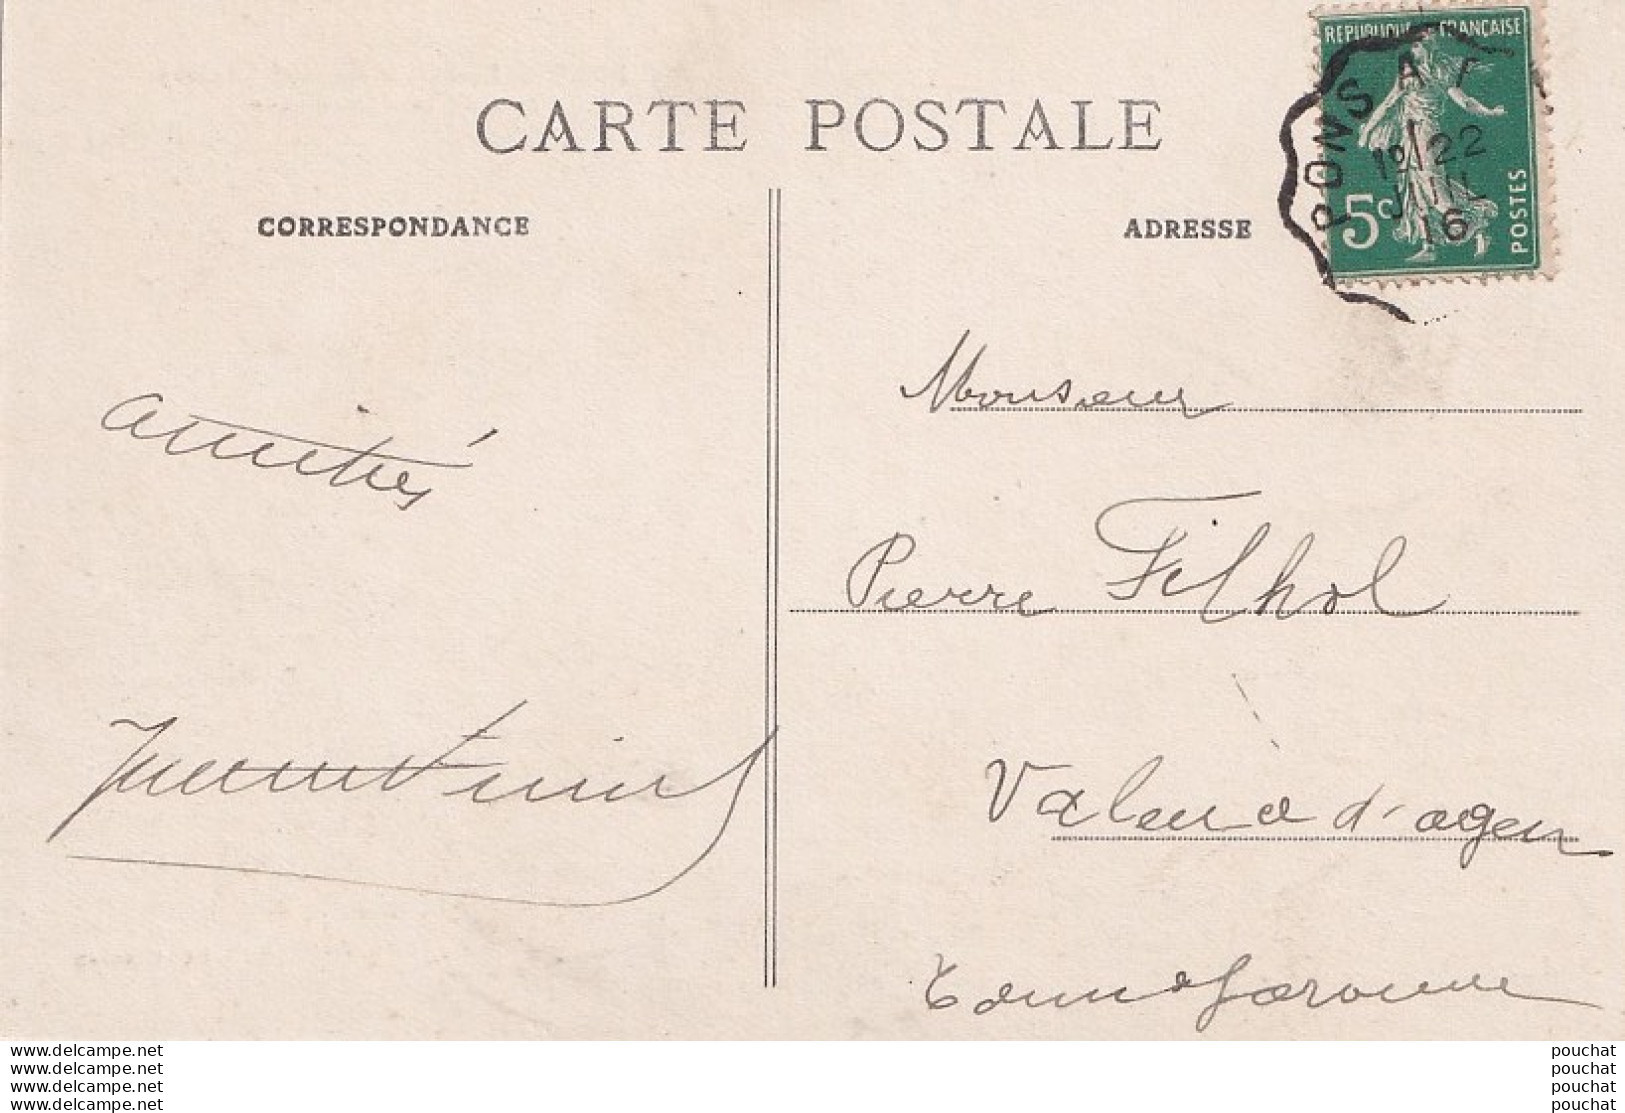 CARTE POSTALE
CORRESPONDANCE
ADRESSE
REPUBLIQUE FRANÇAISE
5c
POSTES
PONS A
22
JUIN
16
amitiés
Monsieur
Pierre Filhol
Valence d'agen
Tarn & Garonne
www.delcampe.net
www.delcampe.net
www.delcampe.net
www.delcampe.net
pouchat
pouchat
pouchat
pouchat